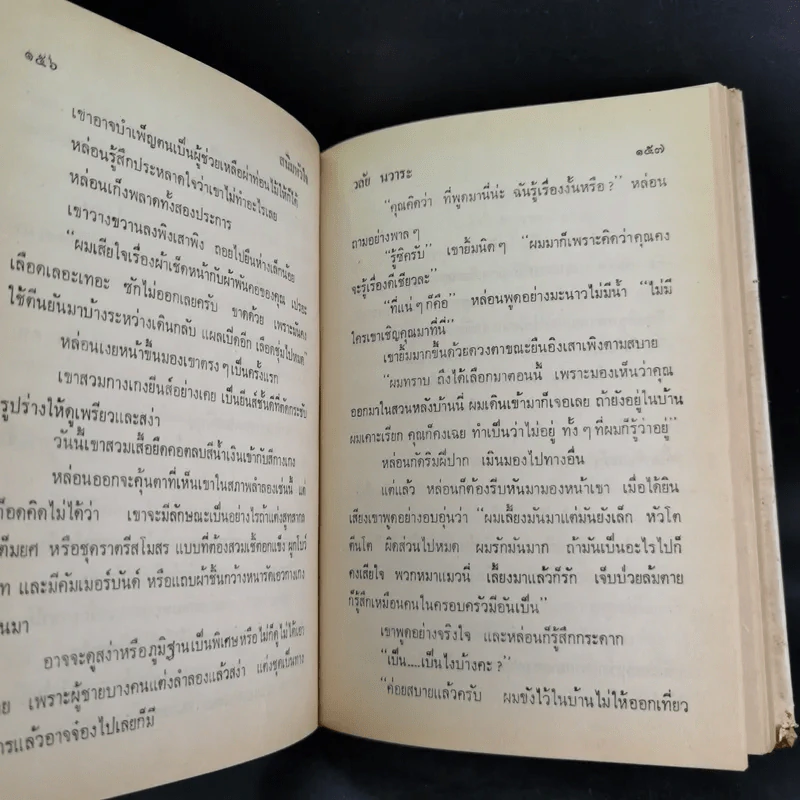 ๑๕๖
สนิมหัวใจ
เขาอาจบำเพ็ญตนเป็นผู้ช่วยเหลือผ่าท่อนไม้ให้ก็ได้
หล่อนรู้สึกประหลาดใจว่าเขาไม่ทำอะไรเลย
หล่อนเก็งพลาดทั้งสองประการ
เขาวางขวานลงพิงเสาพิง ถอยไปยืนห่างเล็กน้อย
“ผมเสียใจเรื่องผ้าเช็ดหน้ากับผ้าพันคอของคุณ เปรอะ
เลือดเลอะเทอะ ซักไม่ออกเลยครับ ขาดด้วย เพราะมันคง
ใช้ตีนยันมาบ้างระหว่างเดินกลับ แผลเปิดอีก เลือดชุ่มไปหมด”
หล่อนเงยหน้าขึ้นมองเขาตรง ๆ เป็นครั้งแรก
เขาสวมกางเกงยีนส์อย่างเคย เป็นยีนส์ชั้นดีที่ตัดกระชับ
รูปร่างให้ดูเพรียวและสง่า
วันนี้เขาสวมเสื้อยืดคอตลบสีน้ำเงินเข้ากับสีกางเกง
หล่อนออกจะคุ้นตาที่เห็นเขาในสภาพลำลองเช่นนี้ แต่
คิดไม่ได้ว่า เขาจะมีลักษณะเป็นอย่างไรถ้าแต่งสุทสากล
เต็มยศ หรือชุดราตรีสโมสร แบบที่ต้องสวมเชิ้ตอกแข็ง ผูกโบว์
และมีคัมเมอร์บันด์ หรือแถบผ้าชั้นกว้างหนารัดเอวกางเกง
อาจจะดูสง่าหรือภูมิฐานเป็นพิเศษหรือไม่ก็ดูไม่ได้เอา
เพราะผู้ชายบางคนแต่งลำลองแล้วสง่า แต่งชุดเป็นทาง
การแล้วอาจจ๋องไปเลยก็มี
วลัย นวาระ
๑๕๗
“คุณคิดว่า ที่พูดมานี่น่ะ ฉันรู้เรื่องงั้นหรือ ?” หล่อน
ถามอย่างพาล ๆ
“รู้ซิครับ” เขายิ้มนิด ๆ “ผมมาก็เพราะคิดว่าคุณคง
จะรู้เรื่องดีเชียวละ”
“ที่แน่ ๆ ก็คือ” หล่อนพูดอย่างมะนาวไม่มีน้ำ “ไม่มี
ใครเขาเชิญคุณมาที่นี่”
เขายิ้มมากขึ้นด้วยดวงตาขณะยืนอิงเสาเพิงตามสบาย
“ผมทราบ ถึงได้เลือกมาตอนนี้ เพราะมองเห็นว่าคุณ
ออกมาในสวนหลังบ้านนี่ ผมเดินเข้ามาก็เจอเลย ถ้ายังอยู่ในบ้าน
ผมเคาะเรียก คุณก็คงเฉย ทำเป็นว่าไม่อยู่ ทั้ง ๆ ที่ผมก็รู้ว่าอยู่”
หล่อนกัดริมฝีปาก เมินมองไปทางอื่น
แต่แล้ว หล่อนก็ต้องรีบหันมามองหน้าเขา เมื่อได้ยิน
เสียงเขาพูดอย่างอบอุ่นว่า “ผมเลี้ยงมันมาแต่มันยังเล็ก หัวโต
ตีนโต ผิดส่วนไปหมด ผมรักมันมาก ถ้ามันเป็นอะไรไปก็
คงเสียใจ พวกหมาแมวนี่ เลี้ยงมาแล้วก็รัก เจ็บป่วยล้มตาย
ก็รู้สึกเหมือนคนในครอบครัวมีอันเป็น”
เขาพูดอย่างจริงใจ และหล่อนก็รู้สึกกระดาก
“เป็น....เป็นไงบ้างคะ ?”
“ค่อยสบายแล้วครับ ผมขังไว้ในบ้านไม่ให้ออกเที่ยว